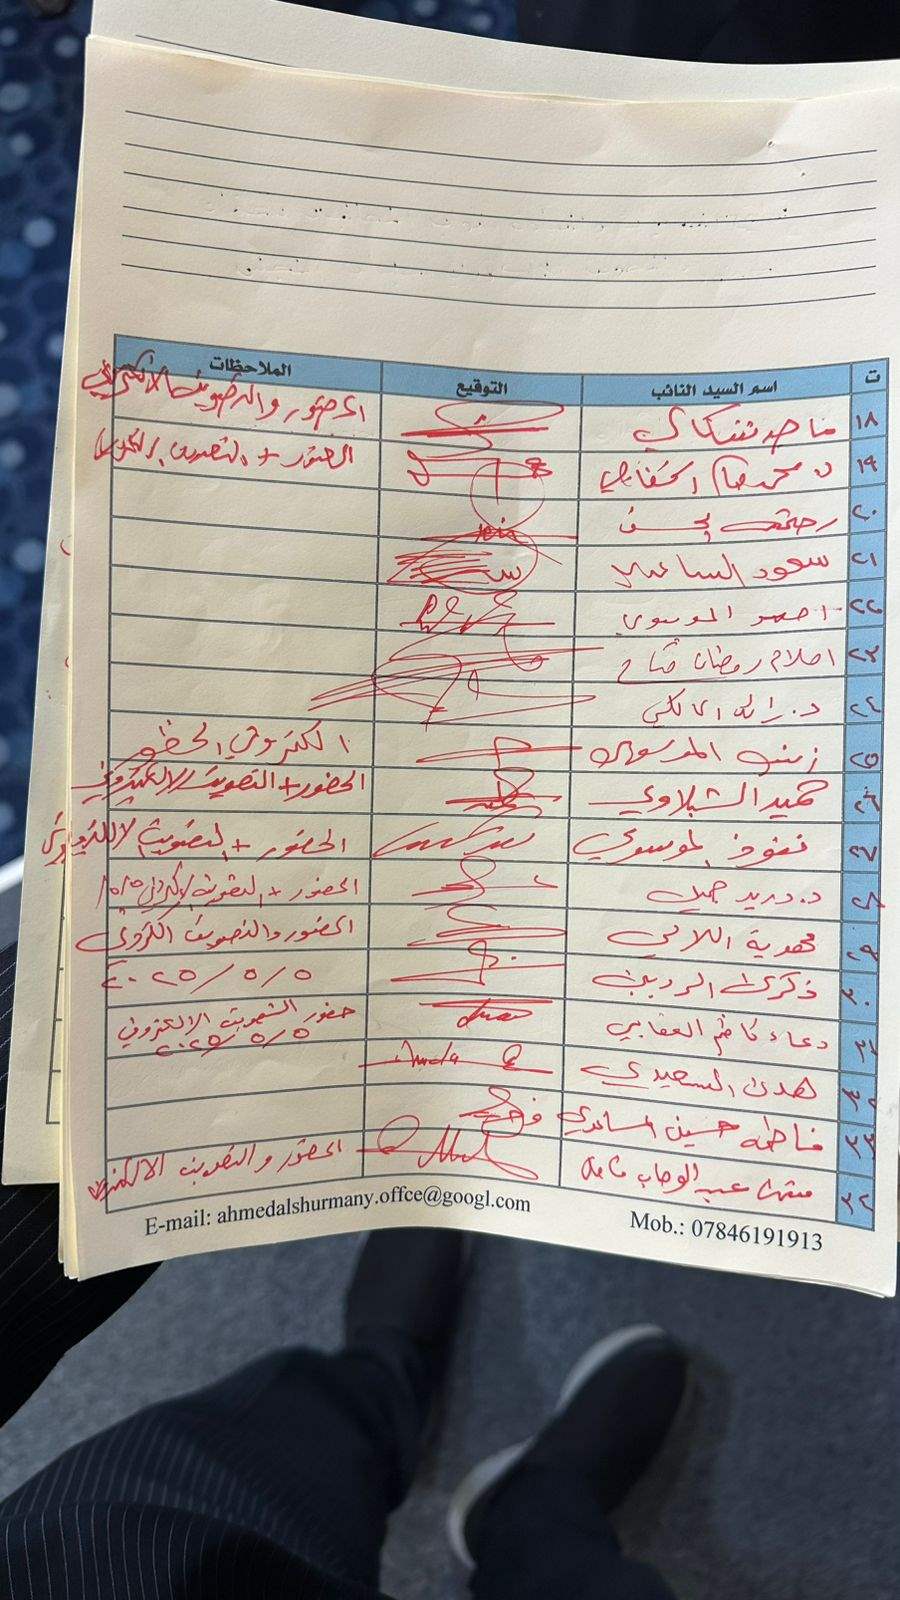 ت اسم السيد النائب التوقيع الملاحظات
١٨ ماجد شنكالي الحضور والتصويت الالكتروني
١٩ د محمد الخفاجي الحضور + التصويت الالكتروني
٢٠
٢١ سعود الساعدي
٢٢ احمد الموسوي
٢٣ احلام رمضان فتاح
٢٤ د. رائد المالكي
٢٥ زينب الموسوي الكتروني الحضور
٢٦ حميد الشبلاوي الحضور + التصويت الالكتروني
٢٧ نفوذ الموسوي الحضور + التصويت الالكتروني
٢٨ د. دريد جميل الحضور + التصويت الالكتروني ٥/٥
٢٩ مهدية اللامي الحضور والتصويت الكتروني
٣٠ ذكرى ٢٠٢٥/٥/٥
٣١ دعاء كاظم العقابي حضور التصويت الالكتروني
٢٠٢٥/٥/٥
٣٢ هدى السعيدي
٣٣ فاطمة حسين
٣٤ عبد الوهاب الحضور والتصويت الالكتروني
E-mail: ahmedalshurmany.offce@googl.com Mob.: 07846191913